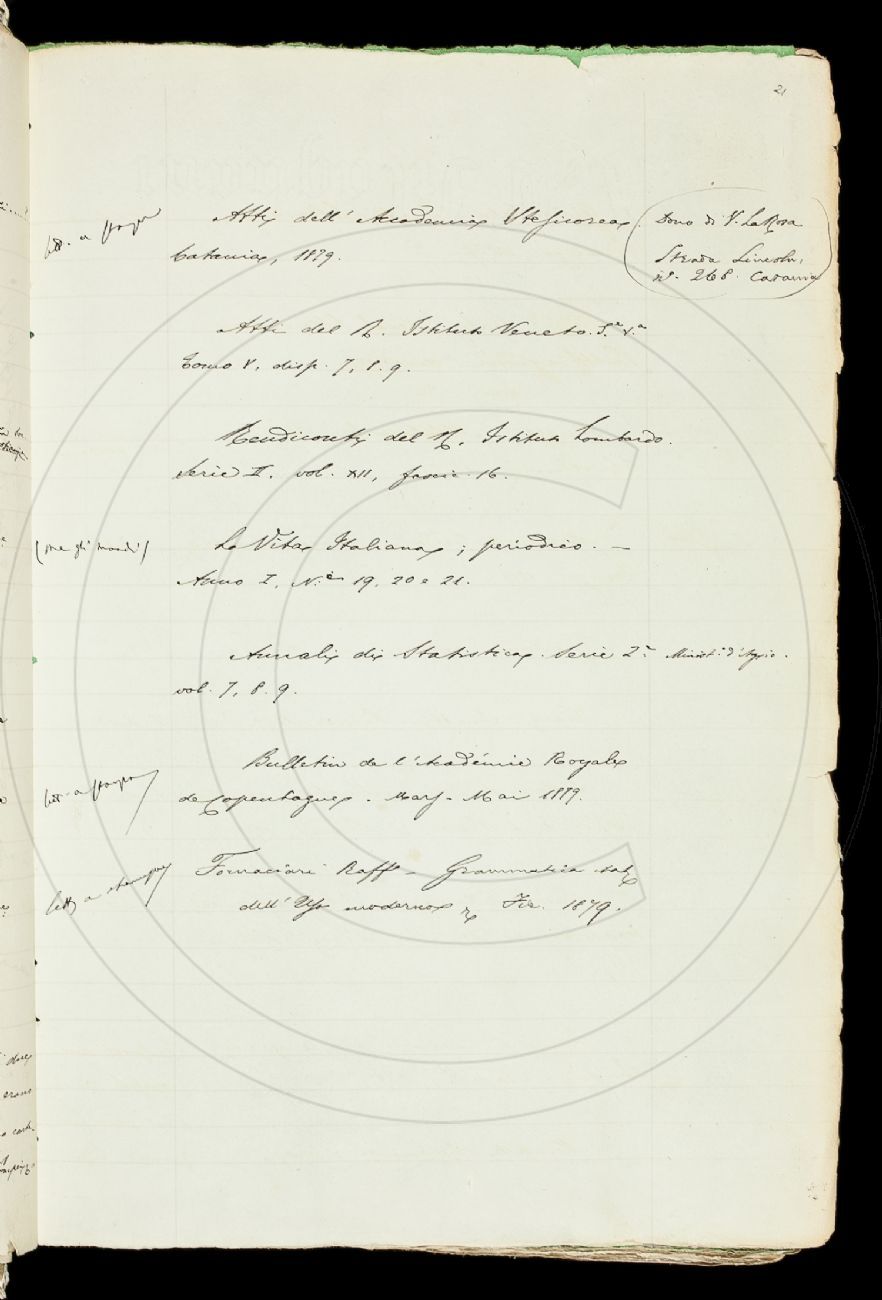 21
lett. a stampa
Atti dell' Accademia Stesicorea.
Catania, 1879.
Dono di V. La Rosa
Strada Lincoln,
nº. 268. Catania
Atti del R. Istituto Veneto. S.e V.a
Tomo V, disp. 7, 8. 9.
Rendiconti del R. Istituto Lombardo.
Serie II. vol. XII, fascic. 16.
(me gli mandi)
La Vita Italiana; periodico. —
Anno I. N.i 19, 20 e 21.
Annali di Statistica. Serie 2.a Minist.o d'Agric.
vol. 7, 8. 9.
lett. a stampa
Bulletin de l'Académie Royale
de Copenhague. Mars - Mai 1879.
lett. a stampa
Fornaciari Raff. - Grammatica ital.
dell' Uso moderno, Fir. 1879.